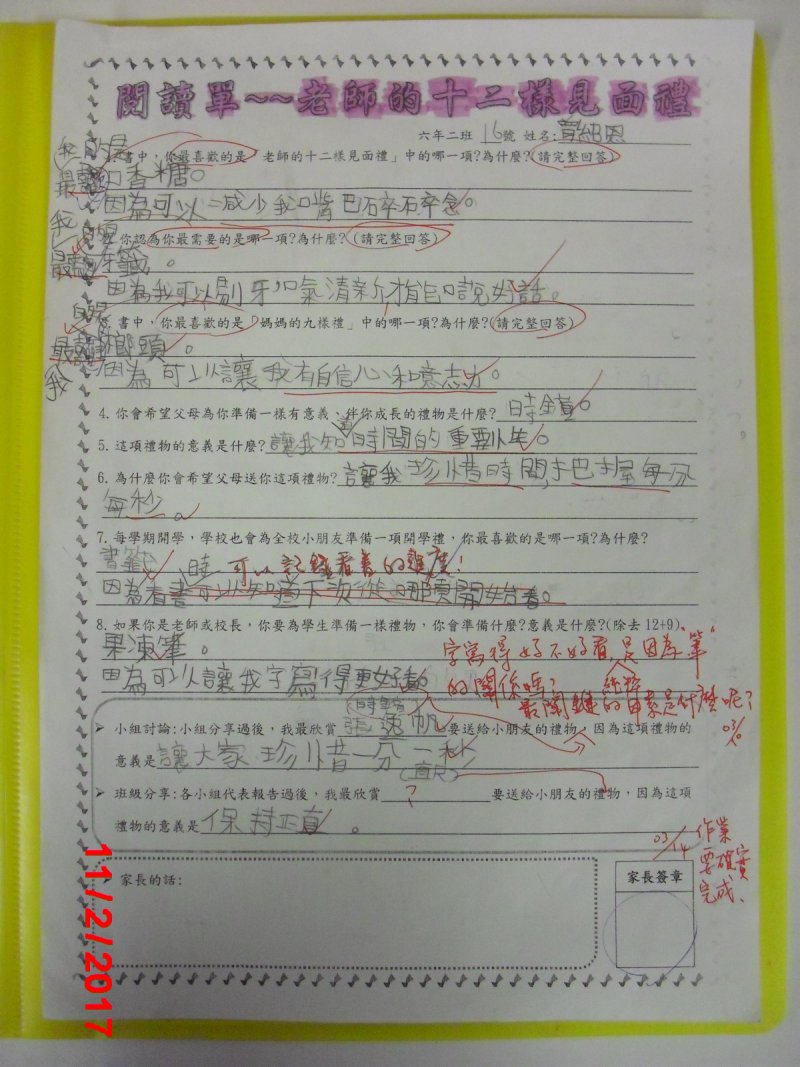 閱讀單~~老師的十二樣見面禮
六年二班 16號 姓名:
1. 書中,你最喜歡的是「老師的十二樣見面禮」中的哪一項?為什麼?(請完整回答)
我最喜歡的是口香糖。
因為可以減少我嘴巴碎碎念。
2. 你認為你最需要的是哪一項?為什麼?(請完整回答)
我最需要的是牙籤。
因為我可以剔牙口氣清新才能口說好話。
3. 書中,你最喜歡的是「媽媽的九樣禮」中的哪一項?為什麼?(請完整回答)
我最喜歡的是榔頭。
因為可以讓我有自信心和意志力。
4. 你會希望父母為你準備一樣有意義、伴你成長的禮物是什麼? 時鐘。
5. 這項禮物的意義是什麼? 讓我知道時間的重要性。
6. 為什麼你會希望父母送你這項禮物? 讓我珍惜時間,把握每一分
每秒。
7. 每學期開學,學校也會為全校小朋友準備一項開學禮,你最喜歡的是哪一項?為什麼?
書籤 時可以記錄看書的進度!
因為看書可以知道下次從哪頁開始看。
8. 如果你是老師或校長,你要為學生準備一樣禮物,你會準備什麼?意義是什麼?(除去12+9)
果凍筆。
因為可以讓我字寫得更好看。
字寫得好不好看,是因為"筆"
的關係嗎? 純粹
最關鍵的因素是什麼呢?
03/10
(時鐘)
➢ 小組討論:小組分享過後,我最欣賞 張逸帆 要送給小朋友的禮物,因為這項禮物的
意義是 讓大家珍惜一分一秒
(直尺)
➢ 班級分享:各小組代表報告過後,我最欣賞 ? 要送給小朋友的禮物,因為這項
禮物的意義是 保持正直。
03/14 作業
要確實
完成、
➢ 家長的話:
家長簽章
11/2/2017